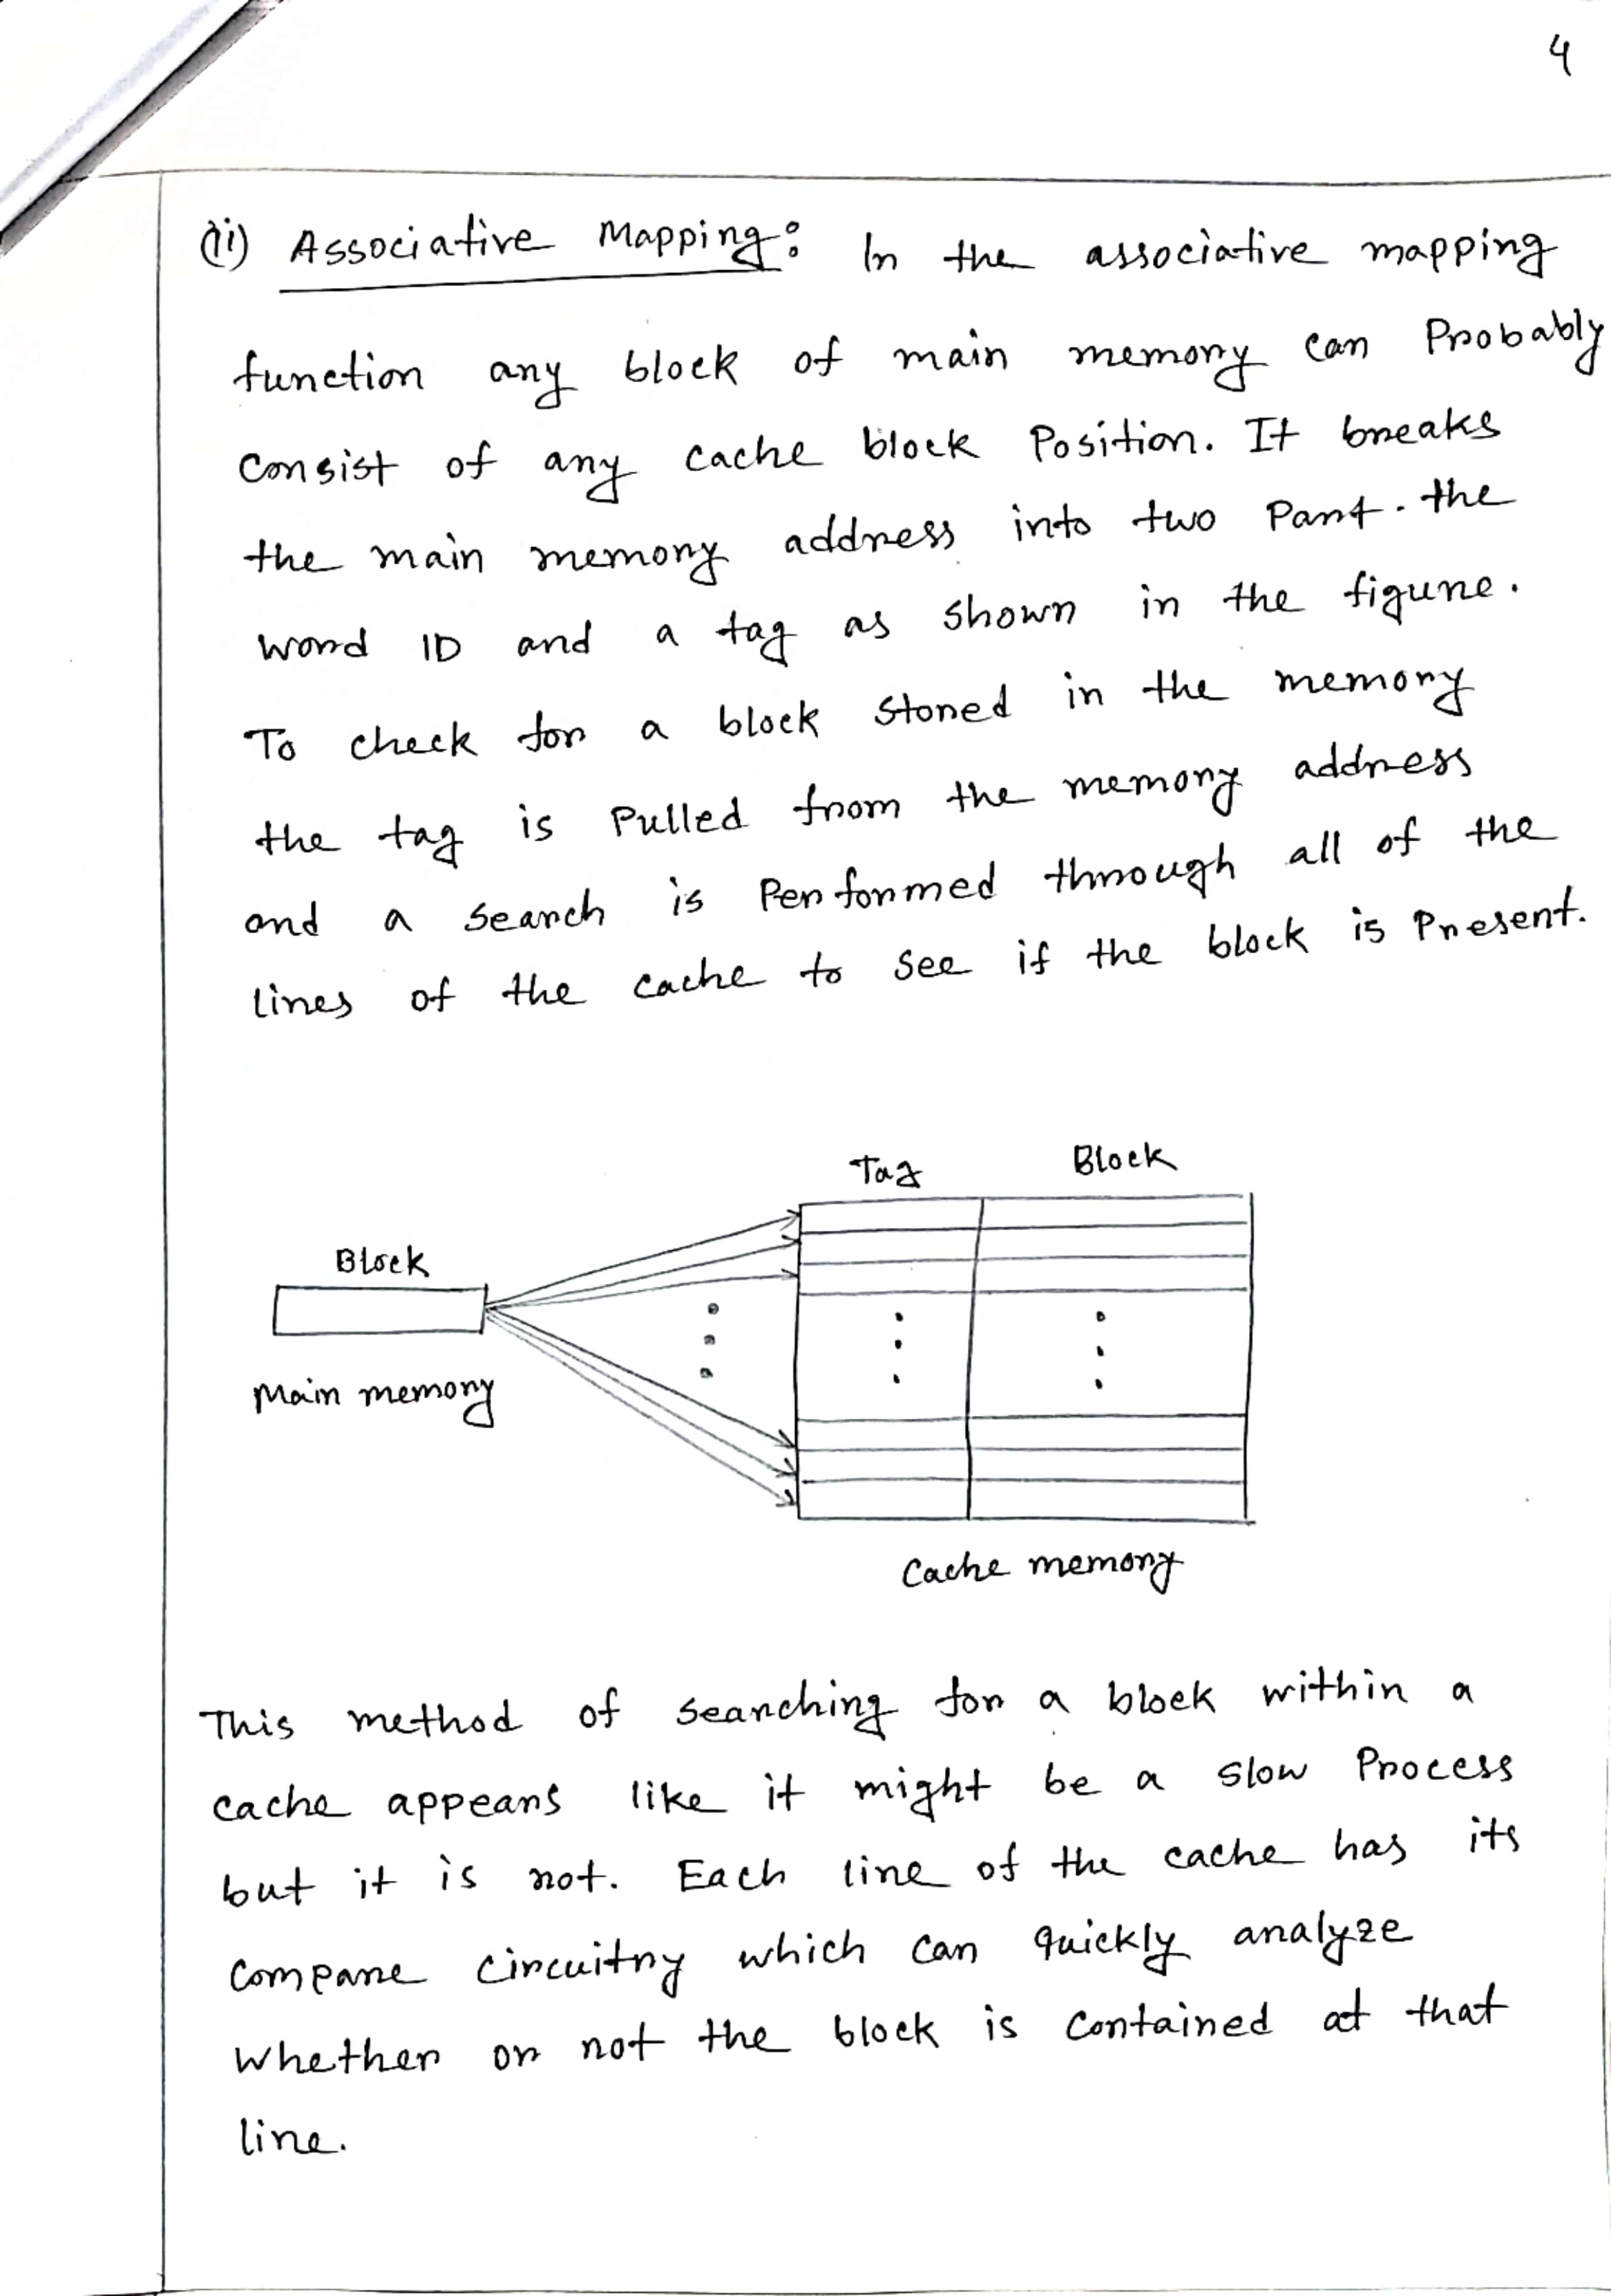 4
(ii) Associative Mapping: In the associative mapping
function any block of main memory can Probably
Consist of any cache block Position. It breaks
the main memory address into two Part. the
word ID and a tag as shown in the figure.
To check for a block stored in the memory
the tag is Pulled from the memory address
and a search is Performed through all of the
lines of the cache to see if the block is Present.
Tag Block
Block
Main memory
Cache memory
This method of searching for a block within a
cache appears like it might be a slow Process
but it is not. Each line of the cache has its
compare circuitry which can quickly analyze
whether or not the block is contained at that
line.